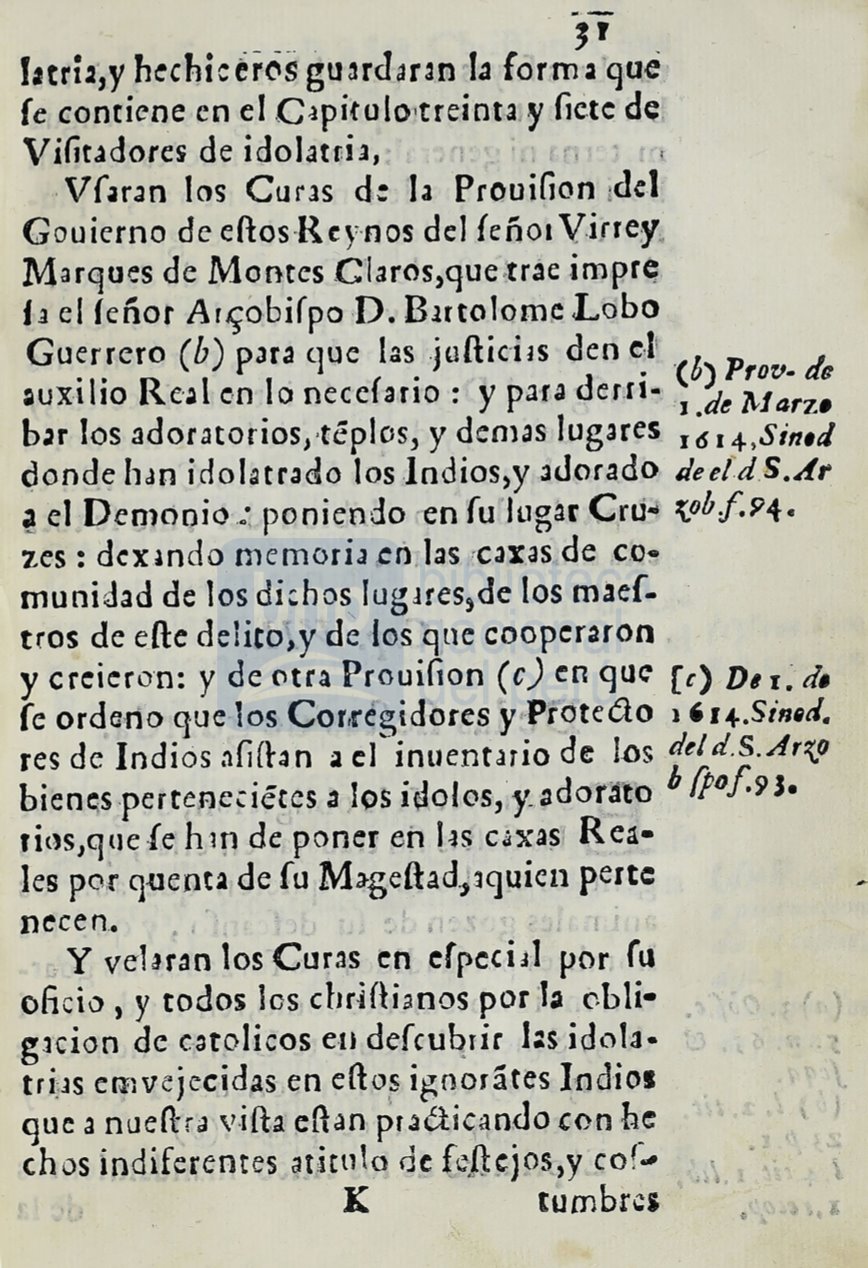 31
latria,y hechiceros guardaran la forma que
ſe contiene en el Capitulo treinta y ſiete de
Viſitadores de idolatria,
Vſaran los Curas de la Prouiſion del
Gouierno de eſtos Reynos del ſeñor Virrey
Marques de Montes Claros,que trae impre
ſa el ſeñor Arçobiſpo D. Bartolome Lobo
Guerrero (b) para que las juſticias den el
auxilio Real en lo neceſario : y para derri-
bar los adoratorios, tẽplos, y demas lugares
donde han idolatrado los Indios,y adorado
a el Demonio : poniendo en ſu lugar Cru-
zes : dexando memoria en las caxas de co-
munidad de los dichos lugares,de los maeſ-
tros de eſte delito,y de los que cooperaron
y creieron: y de otra Prouiſion (c) en que
ſe ordeno que los Corregidores y Protecto
res de Indios aſiſtan a el inuentario de los
bienes perteneciẽtes a los idolos, y adorato
rios,que ſe han de poner en las caxas Rea-
les por quenta de ſu Mageſtad,aquien perte
necen.
Y velaran los Curas en eſpecial por ſu
oficio , y todos los chriſtianos por la obli-
gacion de catolicos en deſcubrir las idola-
trias emvejecidas en eſtos ignorãtes Indios
que a nueſtra viſta eſtan practicando con he
chos indiferentes atitulo de feſtejos,y coſ-
K tumbres
(b) Prov. de
1.de Marzo
1614,Sinod
de el d S.Ar
zob f.94.
[c) De 1. de
1614.Sinod.
del d.S.Arzo
b ſpo f.93.